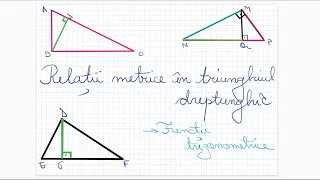 A
B
C
M
N
Q
P
Relații metrice în triunghiul
dreptunghic
D
E
G
F
→ Funcții
trigonometrice